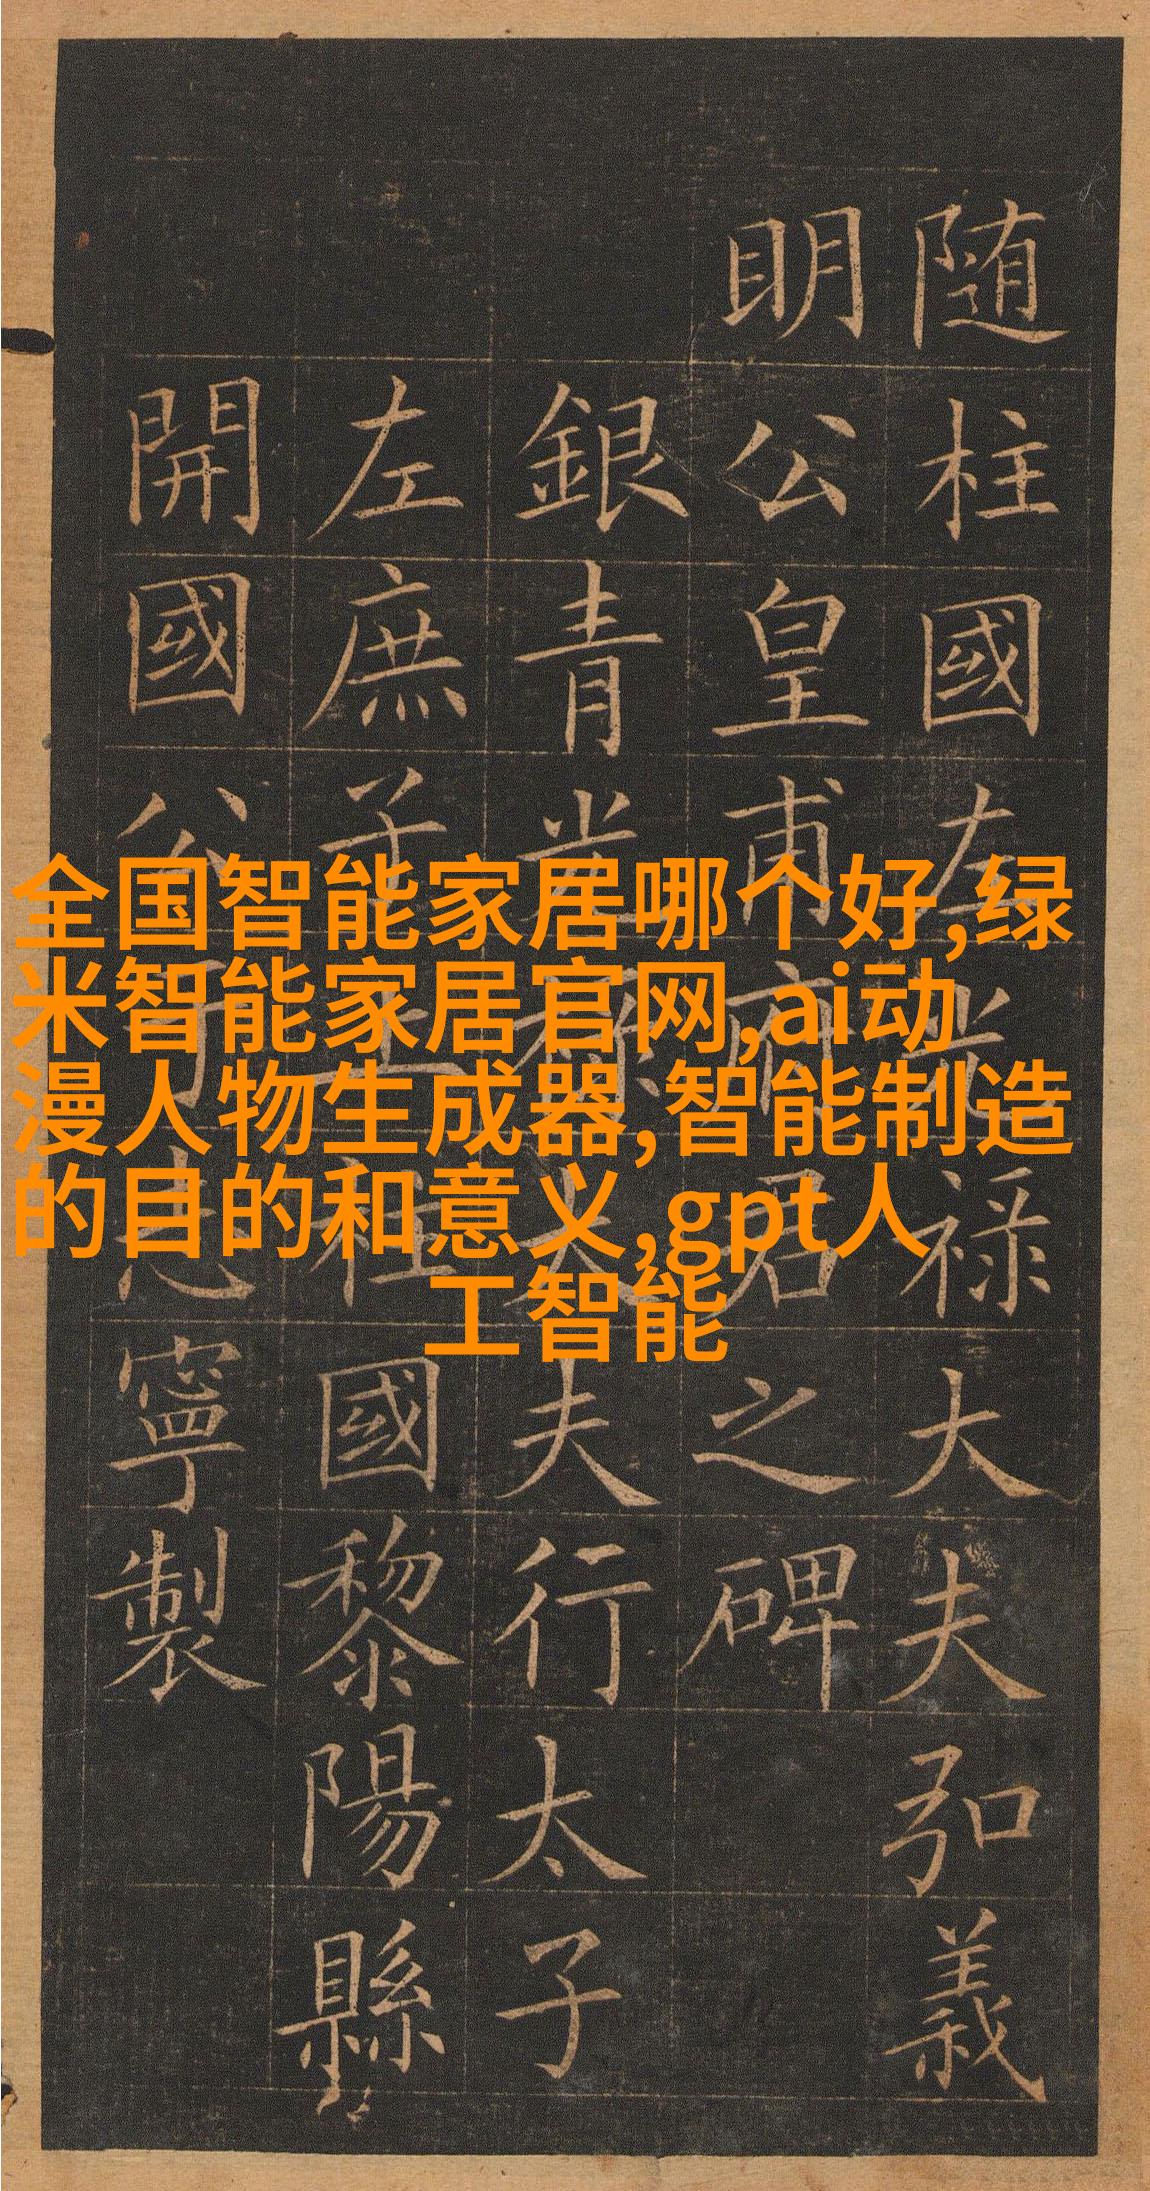 随柱國左光禄大夫弘義
明公皇甫府君之碑
銀青光禄大夫行太子
左庶子上柱國黎陽縣
開國公于志寧製
全国智能家居哪个好,绿
米智能家居官网,ai动
漫人物生成器,智能制造
的目的和意义,gpt人
工智能